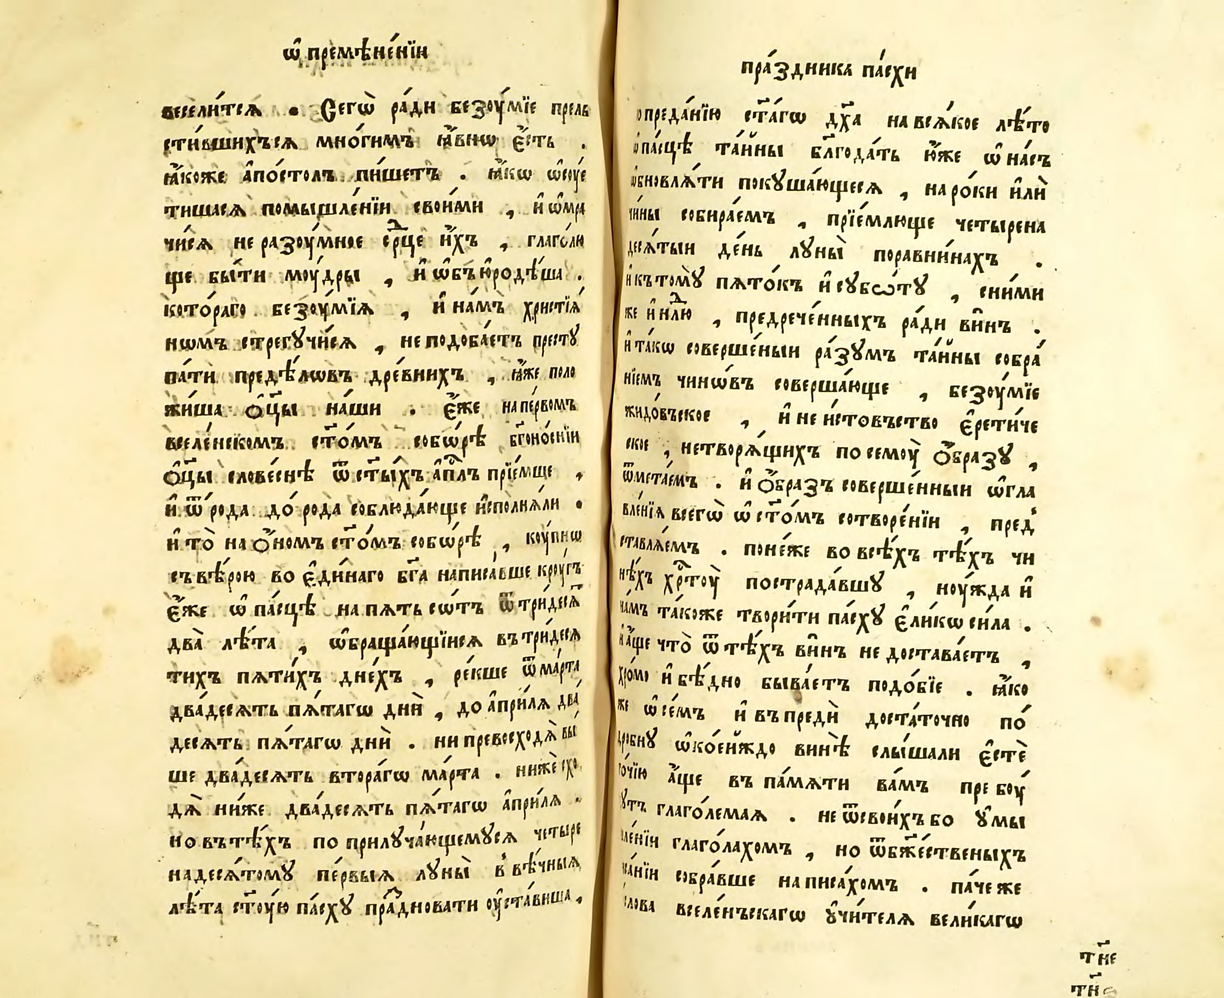 ѡ҆ премѣне́нїи
весели́тсѧ . Сегѡ̀ ра́ди безꙋ́мїе прель
сти́вшихъсѧ мно́гимъ ꙗ҆́внѡ є҆́сть .
ꙗ҆́коже а҆по́столъ пи́шетъ . ꙗ҆́кѡ ѡ҆сꙋе
ти́шасѧ помышле́нїи свои́ми , и҆ ѡ҆мра
чи́сѧ неразꙋ́мное ср҃це и҆́хъ , глаго́лю
ще бы́ти мꙋ́дры , и҆ ѡ҆бъюро́дѣша .
кото́раго безꙋ́мїѧ , и҆ на́мъ христїѧ́
нѡмъ стрегꙋ́чисѧ , не подоба́етъ престꙋ
па́ти предѣ́лѡвъ дре́внихъ , ꙗ҆́же поло
жи́ша ѻ҆ц҃ы на́ши . є҆́же на пе́рвомъ
вселе́нскомъ ст҃о́мъ собо́рѣ , бг҃оно́снїи
ѻ҆ц҃ы слове́снѣ ѿ ст҃ы́хъ а҆пⷭ҇лъ прїе́мше ,
и҆ ѿ ро́да до ро́да соблюда́юще и҆сполнѧ́ли .
и҆ то̀ на ѻ҆́номъ ст҃о́мъ собо́рѣ , кꙋ́пнѡ
съ вѣ́рою во є҆ди́наго бг҃а написа́вше крꙋ́гъ
є҆́же ѡ҆ па́сцѣ на пѧ́ть сѡ́тъ ѿ три́десѧ
два̀ лѣ́та , ѡ҆браща́ющїисѧ въ три́десѧ
ти́хъ пѧти́хъ дне́хъ , ре́кше ѿ ма́рта
два́десѧть пѧ́тагѡ днѝ , до а҆прі́лѧ два́
десѧть пѧ́тагѡ днѝ . ни превосходѧ̀ вы́
ше два́десѧть втора́гѡ ма́рта . ниже схо
дѧ̀ ни́же два́десѧть пѧ́тагѡ а҆прі́лѧ .
но въ тѣ́хъ по прилꙋча́ющемꙋсѧ четыре
надесѧ́томꙋ пе́рвыѧ лꙋны̀ в вѣ́чныѧ
лѣ́та ст҃ꙋ́ю па́схꙋ пра́здновати ᲂу҆ста́виша ,
пра́здника па́схи
по преда́нїю ст҃а́гѡ дх҃а на всѧ́кое лѣ́то
ѡ҆ па́сцѣ та́йны бл҃года́ть ю҆́же ѡ҆ на́съ
ѡ҆бновлѧ́ти покꙋша́ющесѧ , на ро́ки и҆лѝ
чи́ны собира́емъ , прїе́млюще четырена
десѧ́тыи де́нь лꙋны̀ по равни́нахъ .
и҆ къ томꙋ̀ пѧто́къ и҆ сꙋббѡ́тꙋ , с ни́ми
же и҆ нⷣлю , предрече́нныхъ ра́ди ви́нъ .
и҆ та́кѡ соверше́ныи ра́зꙋмъ та́йны собра́
нїемъ чинѡ́въ соверша́юще , безꙋ́мїе
жидо́въское , и҆ неи́стовъство є҆рети́че
ское , нетворѧ́щихъ по семꙋ̀ ѻ҆́бразꙋ ,
ѿмета́емъ . и҆ ѻ҆́бразъ соверше́нныи ѡ҆гла
вле́нїѧ всегѡ̀ ѡ҆ ст҃о́мъ сотворе́нїи , пред
ставлѧ́емъ . поне́же во всѣ́хъ тѣ́хъ чи
нѣ́хъ хрⷭ҇тꙋ̀ пострада́вшꙋ , нꙋ́жда и҆
на́мъ та́коже твори́ти па́схꙋ є҆ли́кѡ си́ла .
и҆ а҆́ще что̀ ѿ тѣ́хъ ви́нъ не достава́етъ ,
хро́мо и҆ бѣ́дно быва́етъ подо́бїе . ꙗ҆́ко
же ѡ҆ се́мъ и҆ въ предѝ доста́точно по́
дробнꙋ ѡ҆ кое́йждо ви́нѣ слы́шали є҆стѐ
то́чїю а҆́ще въ па́мѧти ва́мъ пребꙋ́
дꙋтъ глаго́лемаѧ . не ѿ свои́хъ бо ᲂу҆мы
шле́нїи глаго́лахомъ , но ѿ бж҃е́ственыхъ
писа́нїи собра́вше написа́хомъ . па́че же
сло́ва вселе́нъскагѡ ᲂу҆чи́телѧ вели́кагѡ